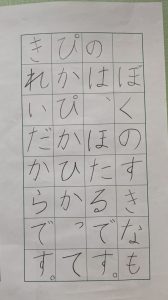 ぼくのすきなも
のは、ほたるです。
ぴかぴかひかって
きれいだからです。